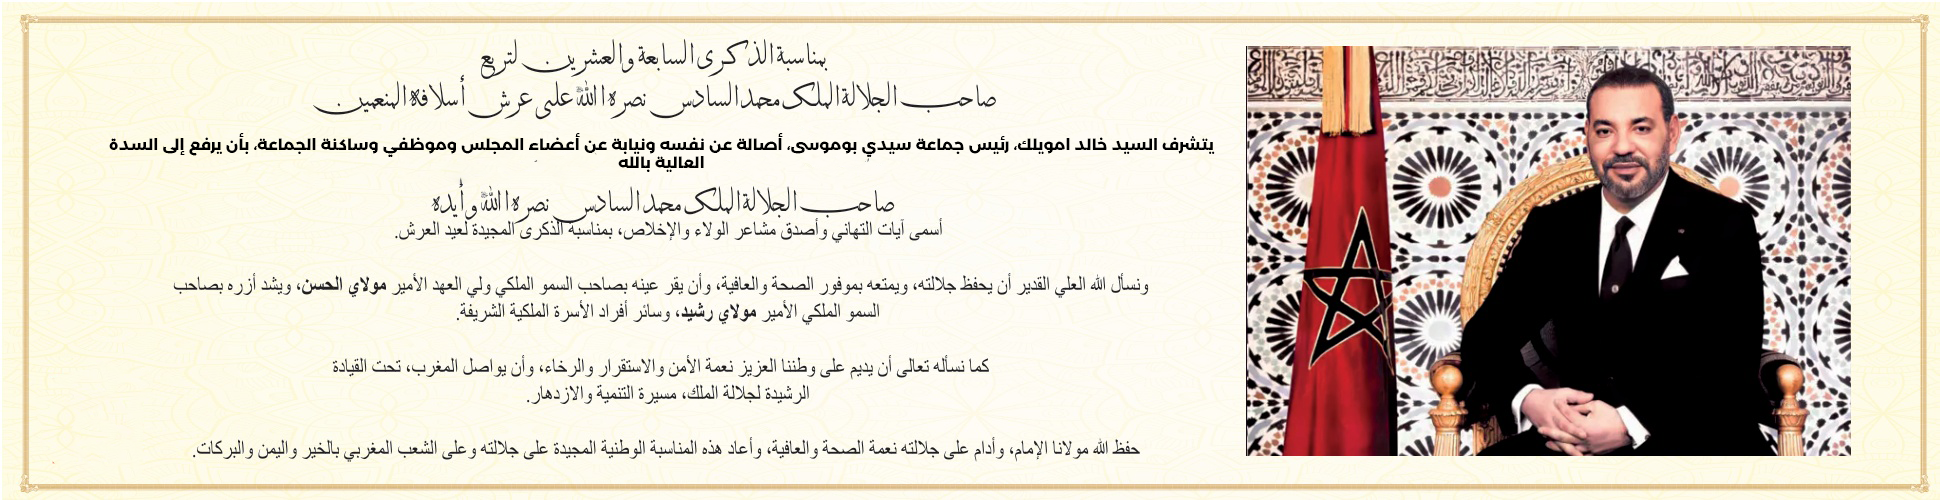 بمناسبة الذكرى السابعة والعشرين لتربع
صاحب الجلالة الملك محمد السادس نصره الله على عرش أسلافه المنعمين
يتشرف السيد خالد امويلك، رئيس جماعة سيدي بوموسى، أصالة عن نفسه ونيابة عن أعضاء المجلس وموظفي وساكنة الجماعة، بأن يرفع إلى السدة
العالية بالله
صاحب الجلالة الملك محمد السادس نصره الله وأيده
أسمى آيات التهاني وأصدق مشاعر الولاء والإخلاص، بمناسبة الذكرى المجيدة لعيد العرش.
ونسأل الله العلي القدير أن يحفظ جلالته، ويمتعه بموفور الصحة والعافية، وأن يقر عينه بصاحب السمو الملكي ولي العهد الأمير مولاي الحسن، ويشد أزره بصاحب
السمو الملكي الأمير مولاي رشيد، وسائر أفراد الأسرة الملكية الشريفة.
كما نسأله تعالى أن يديم على وطننا العزيز نعمة الأمن والاستقرار والرخاء، وأن يواصل المغرب، تحت القيادة
الرشيدة لجلالة الملك، مسيرة التنمية والازدهار.
حفظ الله مولانا الإمام، وأدام على جلالته نعمة الصحة والعافية، وأعاد هذه المناسبة الوطنية المجيدة على جلالته وعلى الشعب المغربي بالخير واليمن والبركات.